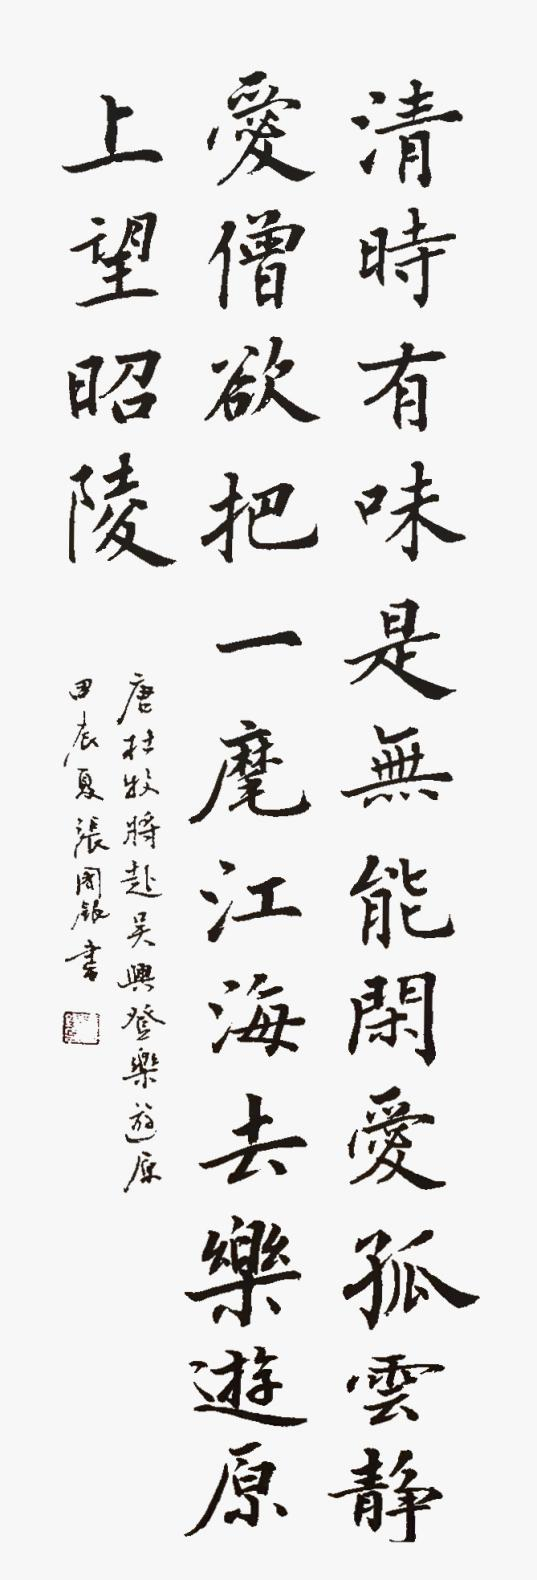 清時有味是無能閑愛孤雲静
愛僧欲把一麾江海去樂遊原
上望昭陵
唐杜牧將赴吴興登樂遊原
甲辰夏張國銀書